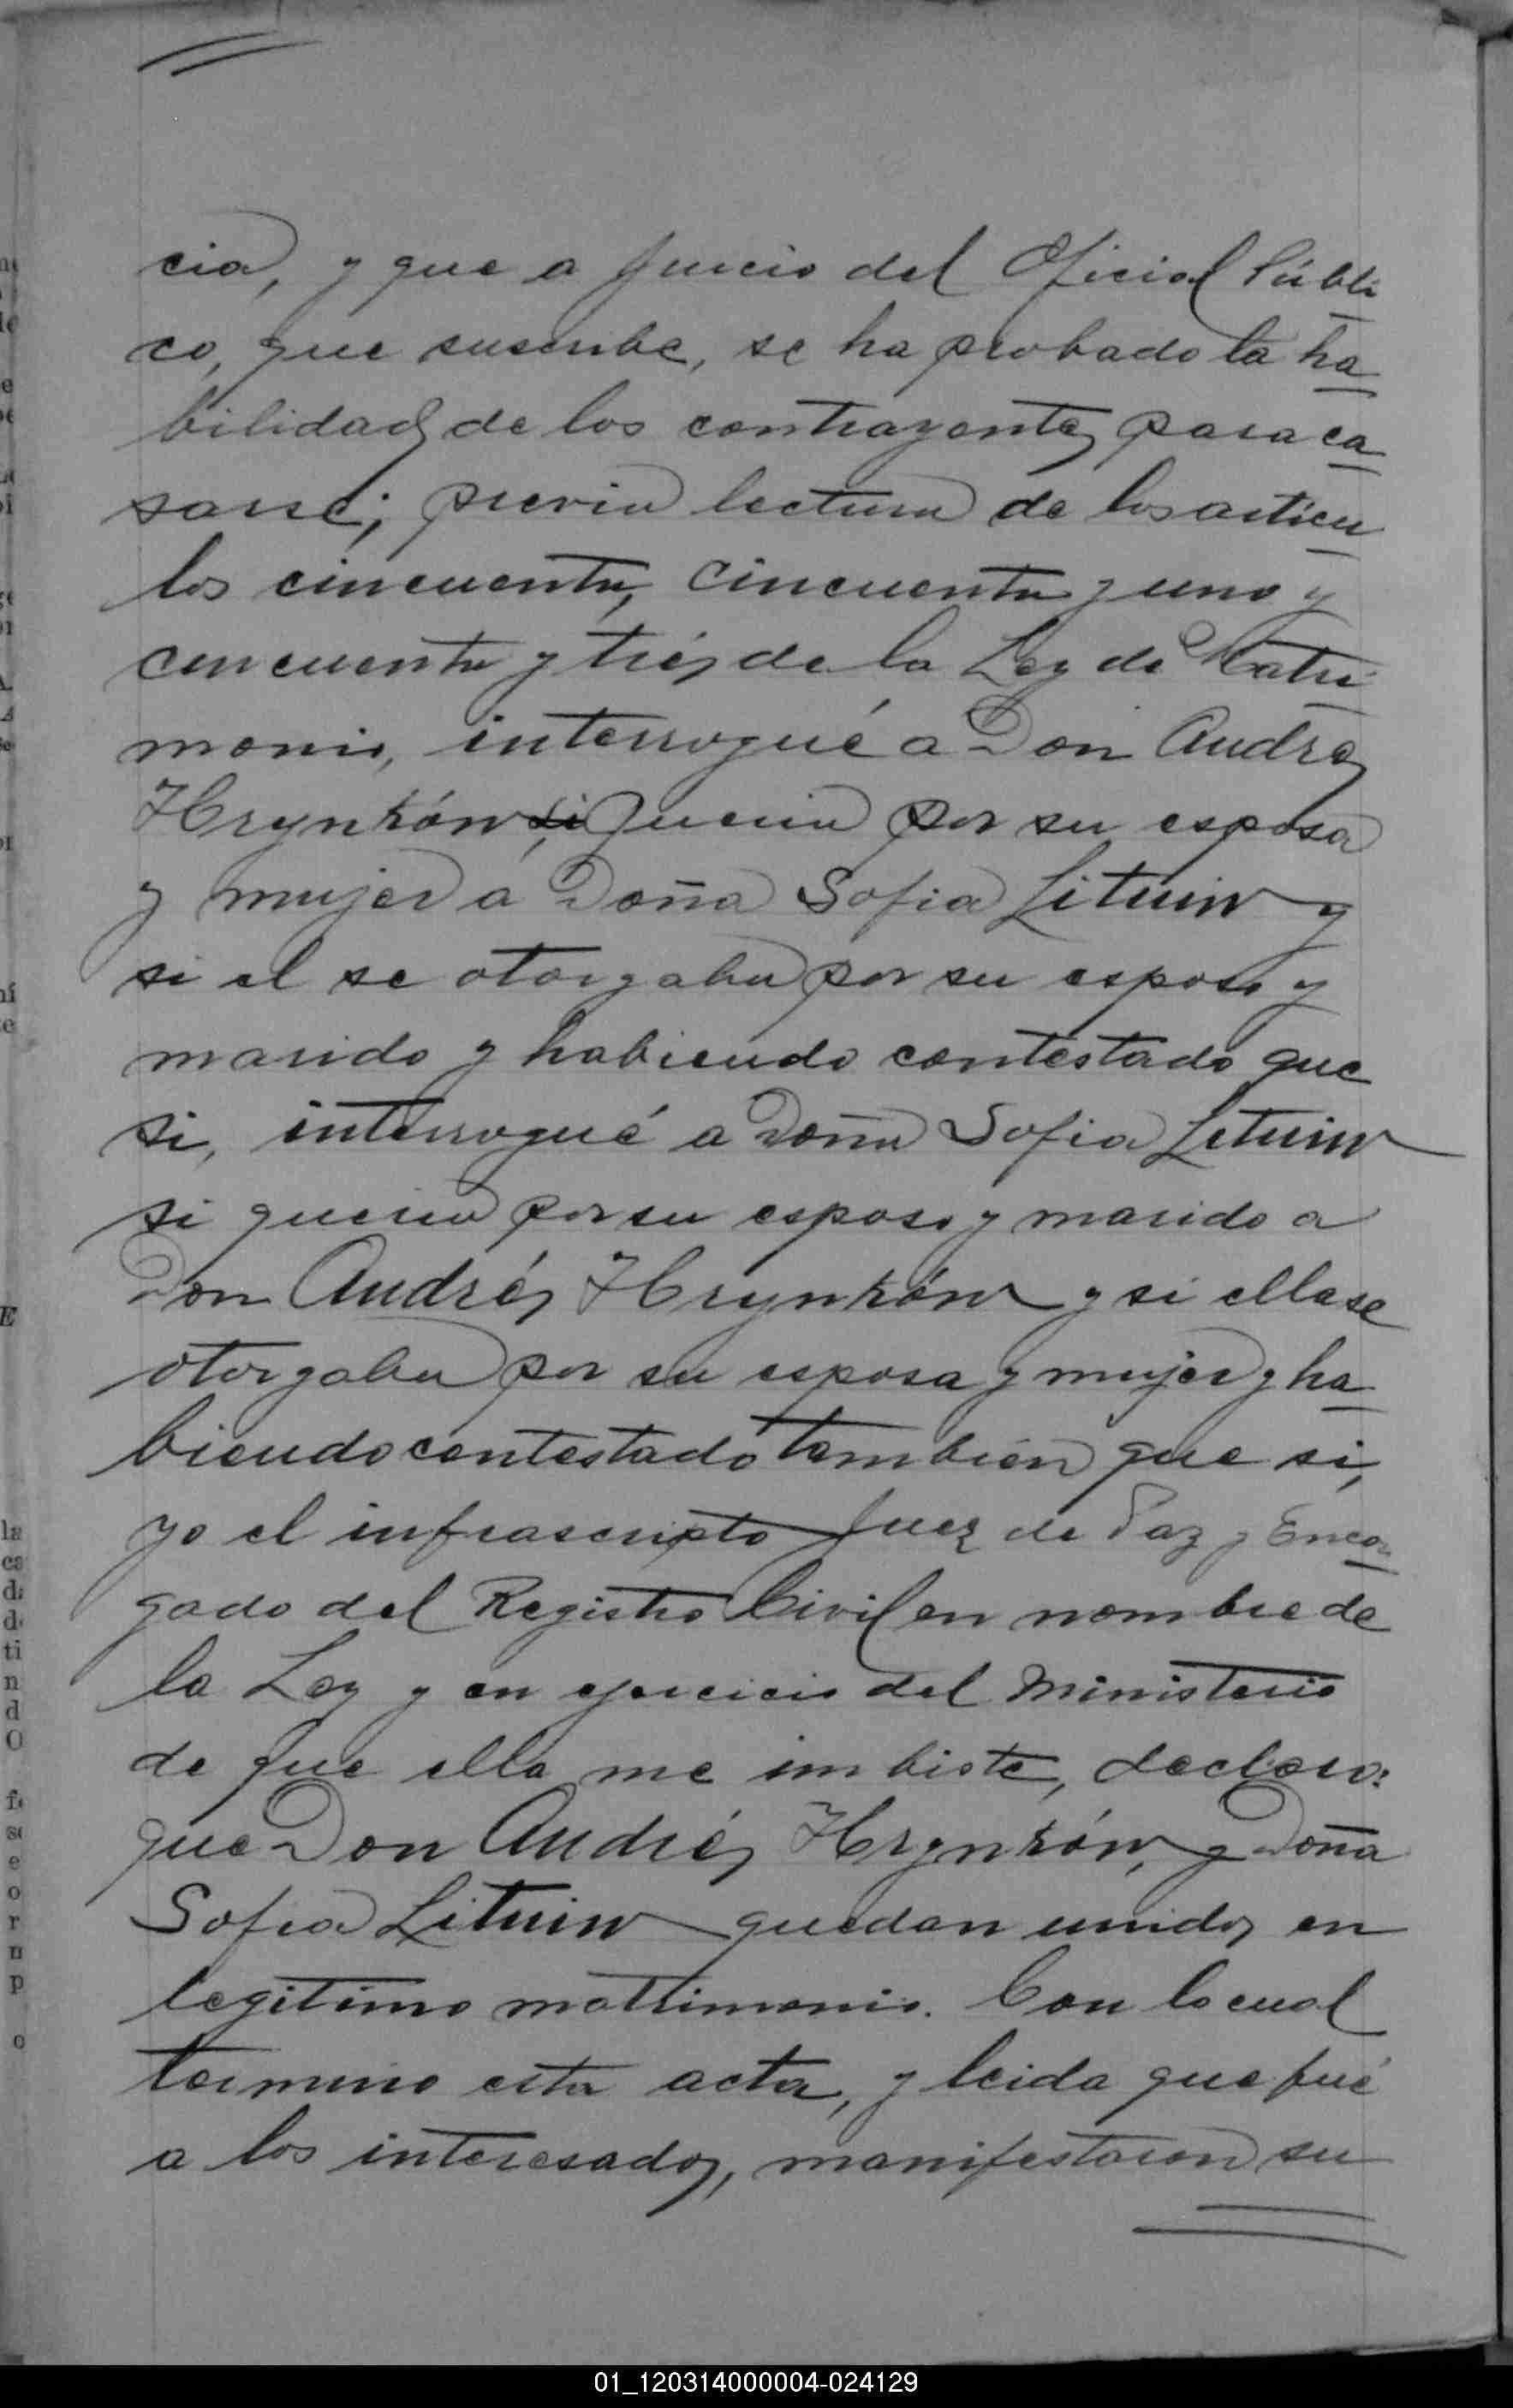 cia, y que a Juicio del Oficial Públi
co, que suscribe, se ha probado la ha
bilidad de los contrayentes para ca
sarse; previa lectura de los articu
los cincuenta, cincuenta y uno y
cincuenta y trés de la Ley de Matri
monio, interrogué a Don Andres
Hrynków, si queria por su esposa
y mujer a Doña Sofia Lituin y
si el se otorgaba por su esposo y
marido y habiendo contestado que
si, interrogué a Doña Sofia Lituin
si queria por su esposo y marido a
Don Andrés Hrynków y si ella se
otorgaba por su esposa y mujer y ha
biendo contestado también que si,
yo el infrascripto Juez de Paz y Encar
gado del Registro Civil en nombre de
la Ley y en ejercicio del Ministerio
de que ella me imbiste, declaro:
que Don Andrés Hrynków, y Doña
Sofia Lituin quedan unidos en
legitimo matrimonio. Con lo cual
termino esta acta, y leida que fué
a los interesados, manifestaron su
01_120314000004-024129